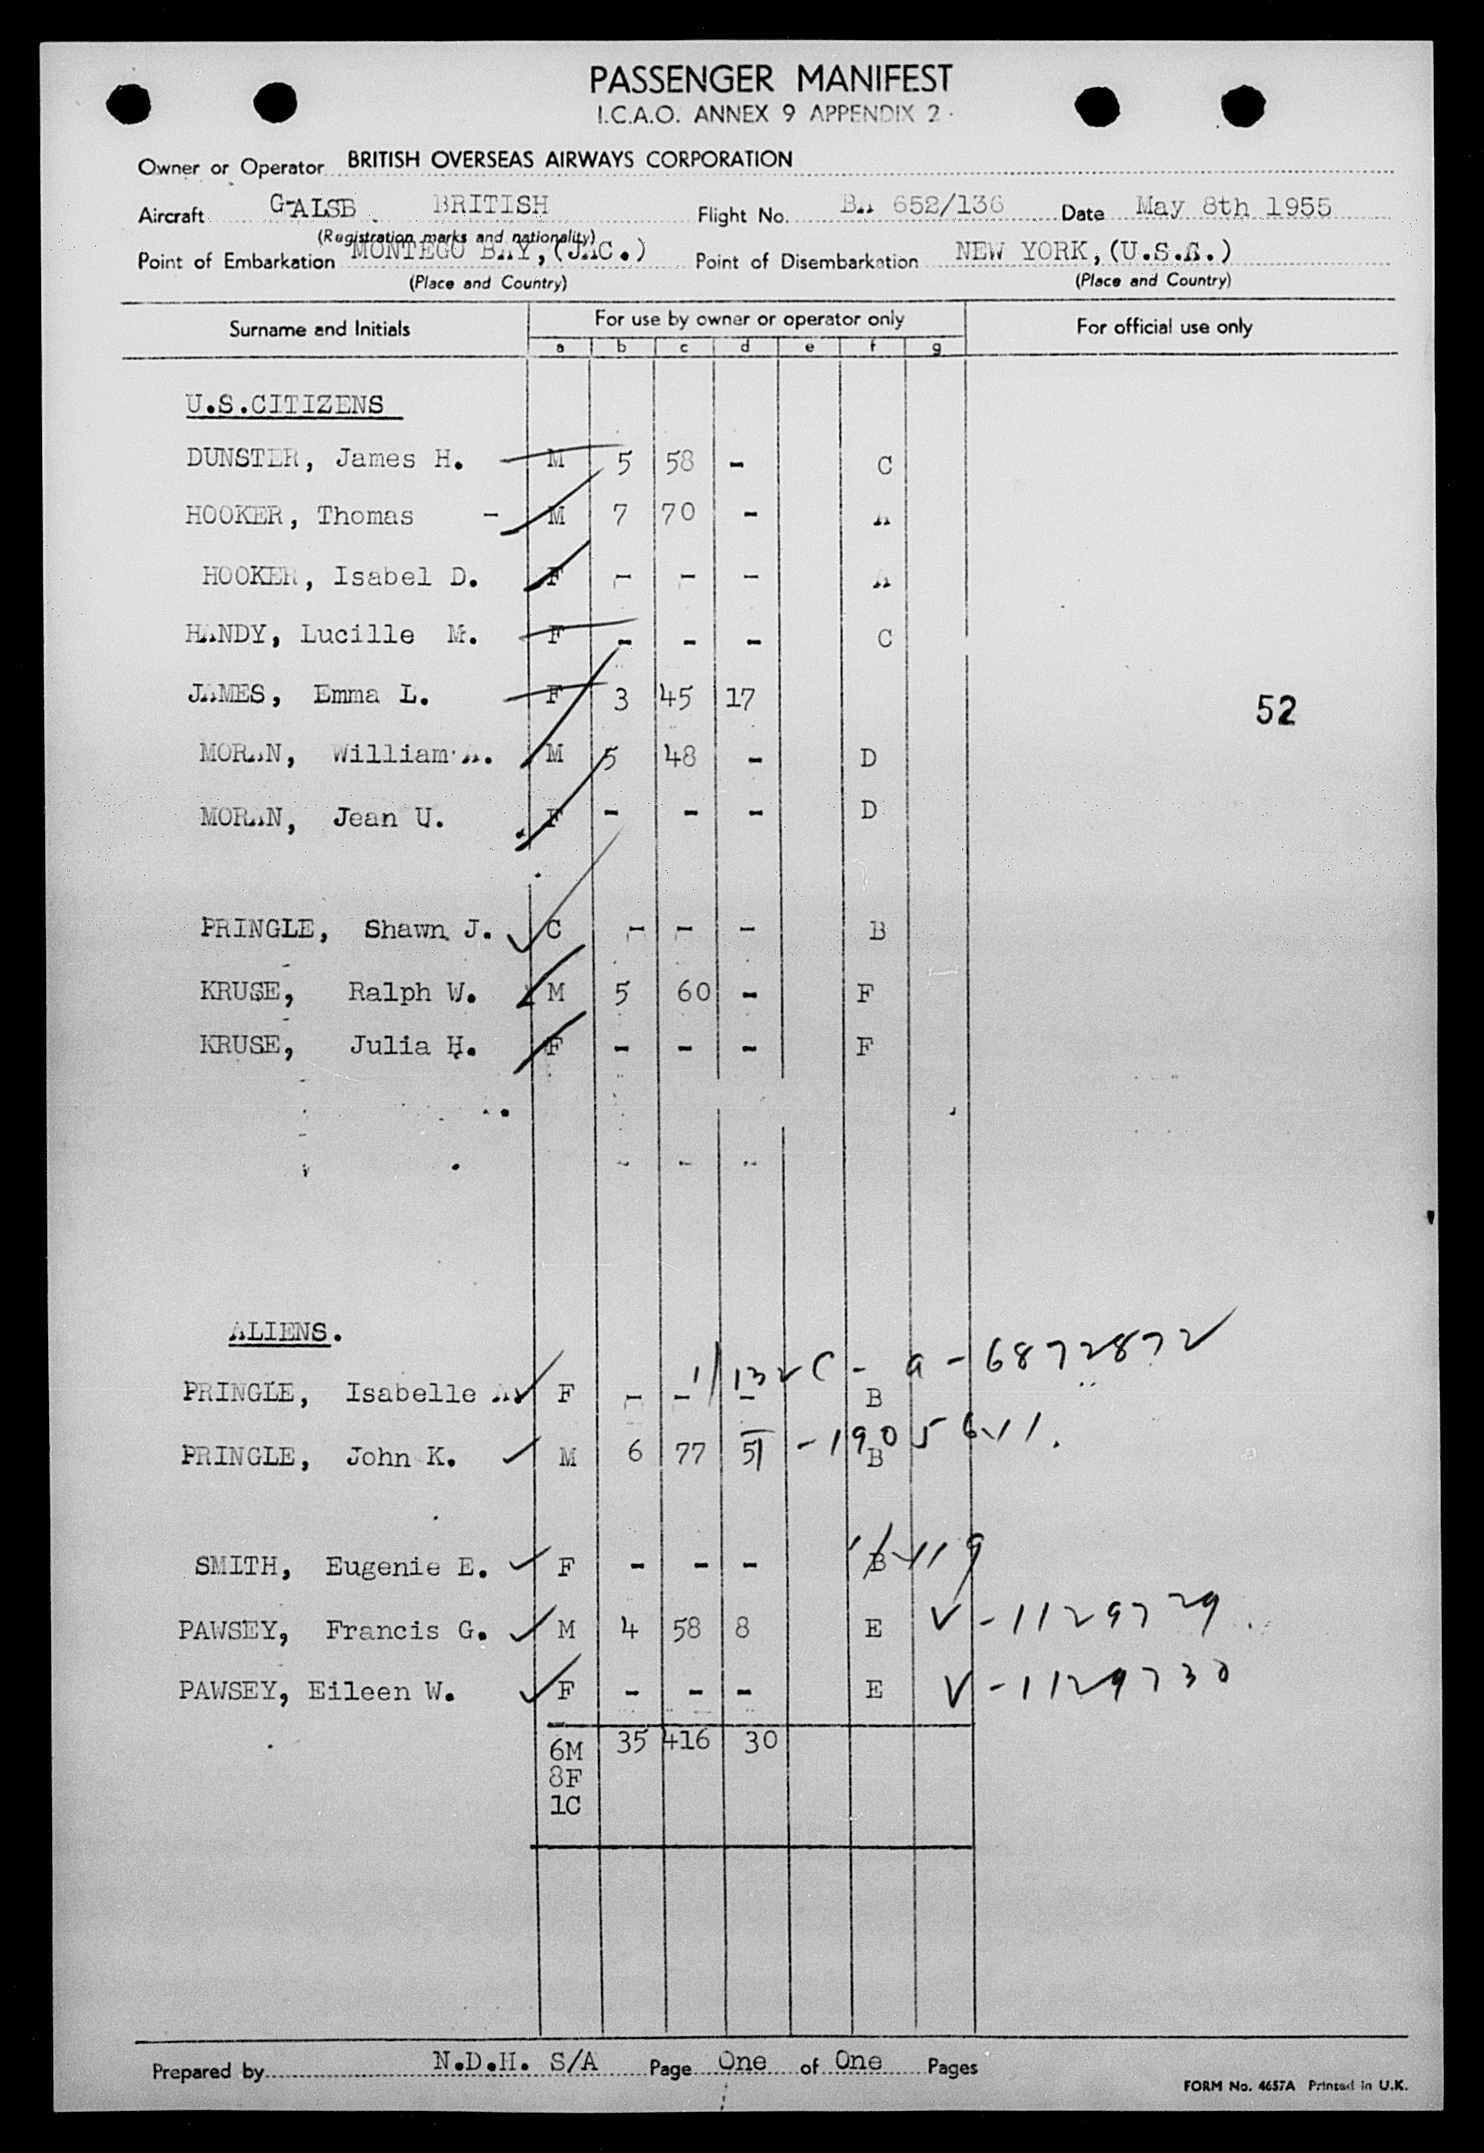 PASSENGER MANIFEST
I.C.A.O. ANNEX 9 APPENDIX 2
Owner or Operator BRITISH OVERSEAS AIRWAYS CORPORATION
Aircraft G-ALSB BRITISH Flight No. BA 652/136 Date May 8th 1955
(Registration marks and nationality)
Point of Embarkation MONTEGO BAY, (JAC.) Point of Disembarkation NEW YORK, (U.S.A.)
(Place and Country) (Place and Country)
Surname and Initials For use by owner or operator only For official use only
a b c d e f g
U.S.CITIZENS
DUNSTER, James H. M 5 58 - C
HOOKER, Thomas - M 7 70 - A
HOOKER, Isabel D. F - - - A
HANDY, Lucille M. F - - - C
JAMES, Emma L. F 3 45 17
52
MORAN, William A. M 5 48 - D
MORAN, Jean U. F - - - D
PRINGLE, Shawn J. C - - - B
KRUSE, Ralph W. M 5 60 - F
KRUSE, Julia H. F - - - F
ALIENS.
PRINGLE, Isabelle A. F - - - B a - 6872872
PRINGLE, John K. M 6 77 51 B - 1905611.
SMITH, Eugenie E. F - - - B
PAWSEY, Francis G. M 4 58 8 E V - 1129729
PAWSEY, Eileen W. F - - - E V - 1129730
6M 35 416 30
8F
1C
Prepared by N.D.H. S/A Page One of One Pages
FORM No. 4657A Printed in U.K.